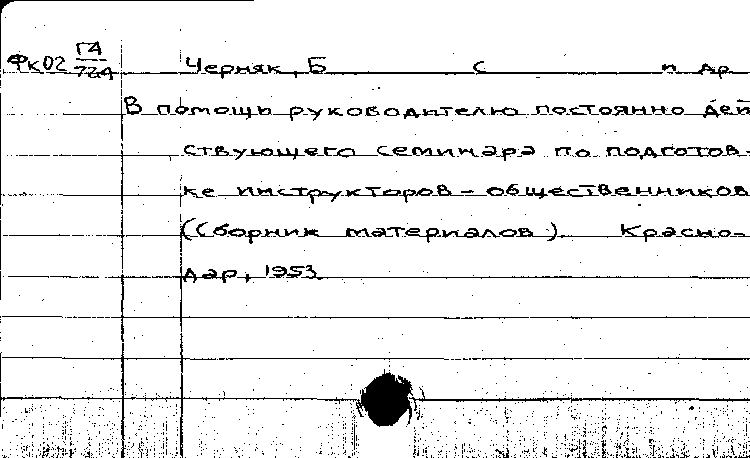 Фк02 ГА/724 Черняк, Б С и др
В помощь руководителю постоянно дей
ствующего семинара по подготов-
ке инструкторов - общественников
(Сборник материалов). Красно-
дар, 1953.